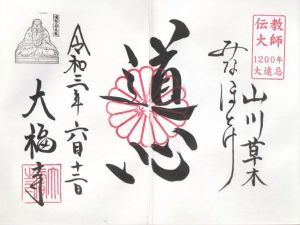 伝教
大師
1200年
大遺忌
山川草木
みなほとけ
道心
令和三年六月十二日
大福寺